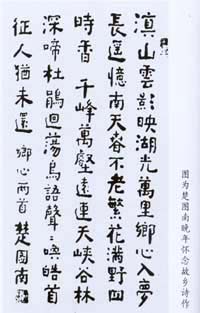 滇山雲影映湖光萬里鄉心入夢
長遥憶南天春不老繁花满野四
時香 千峰萬壑遠連天峽谷林
深啼杜鵑迴荡鳥語聲聲喚皓首
征人猶未還 鄉心兩首 楚圖南
图为楚图南晚年怀念故乡诗作